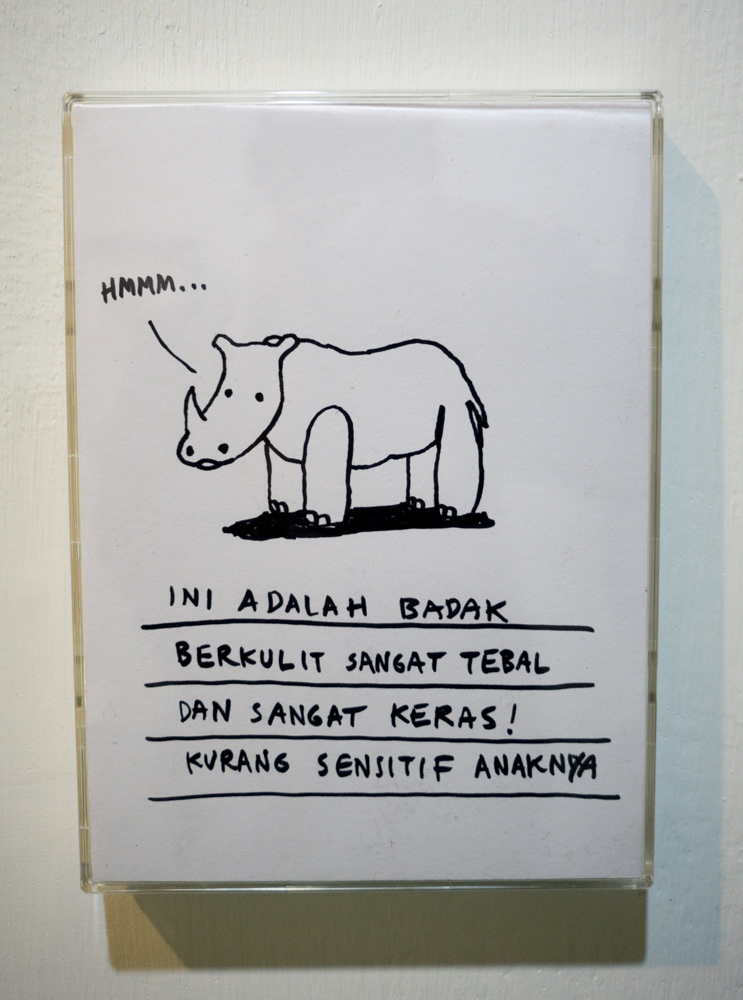 HMMM...
INI ADALAH BADAK
BERKULIT SANGAT TEBAL
DAN SANGAT KERAS!
KURANG SENSITIF ANAKNYA